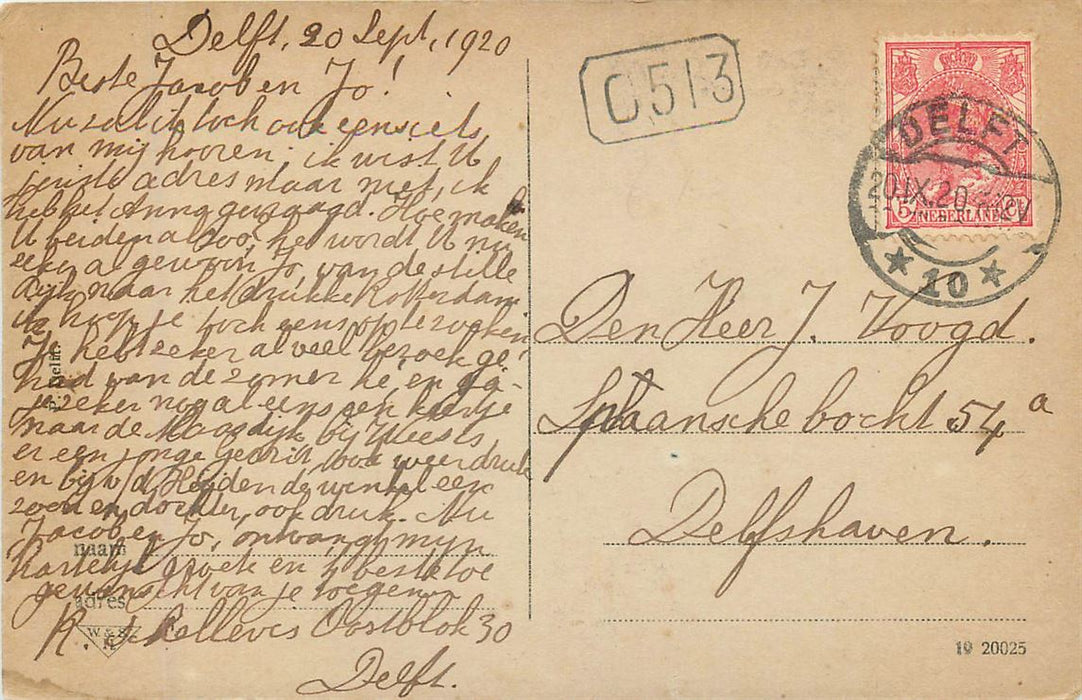 Delft, 20 Sept, 1920
Beste Jacob en Jo!
Nu zal ik toch ook eens iets
van mij hooren; ik wist U
juiste adres maar niet, ik
heb het Anna gevraagd. Hoe maken
U beiden al zoo, het wordt U nu
zeker al gewoon Jo, van de stille
dijk naar het drukke Rotterdam
ik hoop je toch eens op te zoeken
Je hebt zeker al veel bezoek ge-
had van de zomer hé, en ga
je zeker nog al eens een keertje
naar de Maasdijk, bij Weests
er een jonge Gerrit, ook weer druk
en bij v/d Heijden de winkel een
zoon en dochter, ook druk. Nu
Jacob en Jo, ontvangt mijn
hartelijk groete en 't beste toe
gewenscht van je toegen.
K. J. Kellevis Oostblok 30
Delft.
naam
adres
W & S
C 513
DELFT
20.IX.20
10
5
NEDERLAND
Den Heer J. Voogd.
Spaansche bocht 54 a
Delfshaven.
19 20025